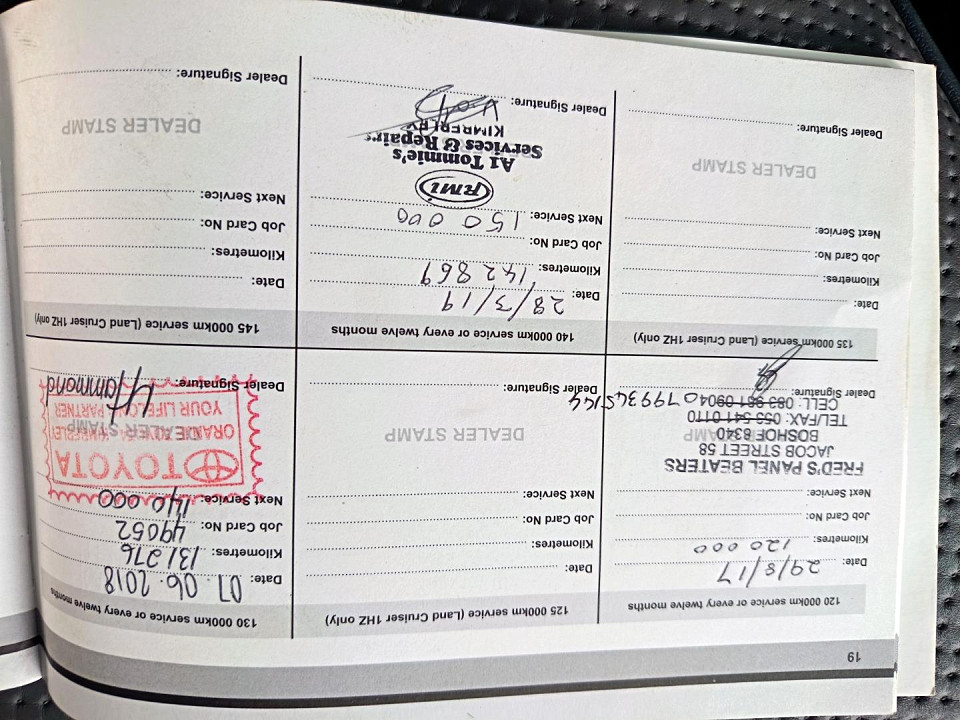 19
120 000km service or every twelve months
Date: 29/8/17
Kilometres: 120 000
Job Card No:
Next Service:
DEALER STAMP
FRED'S PANEL BEATERS
JACOB STREET 58
BOSHOF 8340
TEL/FAX: 053 541 0110
CELL: 083 961 0904 0799345144
Dealer Signature:
125 000km service (Land Cruiser 1HZ only)
Date:
Kilometres:
Job Card No:
Next Service:
DEALER STAMP
Dealer Signature:
130 000km service or every twelve months
Date: 07.06.2018
Kilometres: 131276
Job Card No: 49052
Next Service: 140 000
DEALER STAMP
TOYOTA
YOUR LIFELONG PARTNER
Dealer Signature: Hammond
135 000km service (Land Cruiser 1HZ only)
Date:
Kilometres:
Job Card No:
Next Service:
DEALER STAMP
Dealer Signature:
140 000km service or every twelve months
Date: 28/3/19
Kilometres: 142869
Job Card No:
Next Service: 150 000
RMI
A1 Tommie's
Services & Repairs
KIMBERLEY
Dealer Signature:
145 000km service (Land Cruiser 1HZ only)
Date:
Kilometres:
Job Card No:
Next Service:
DEALER STAMP
Dealer Signature: